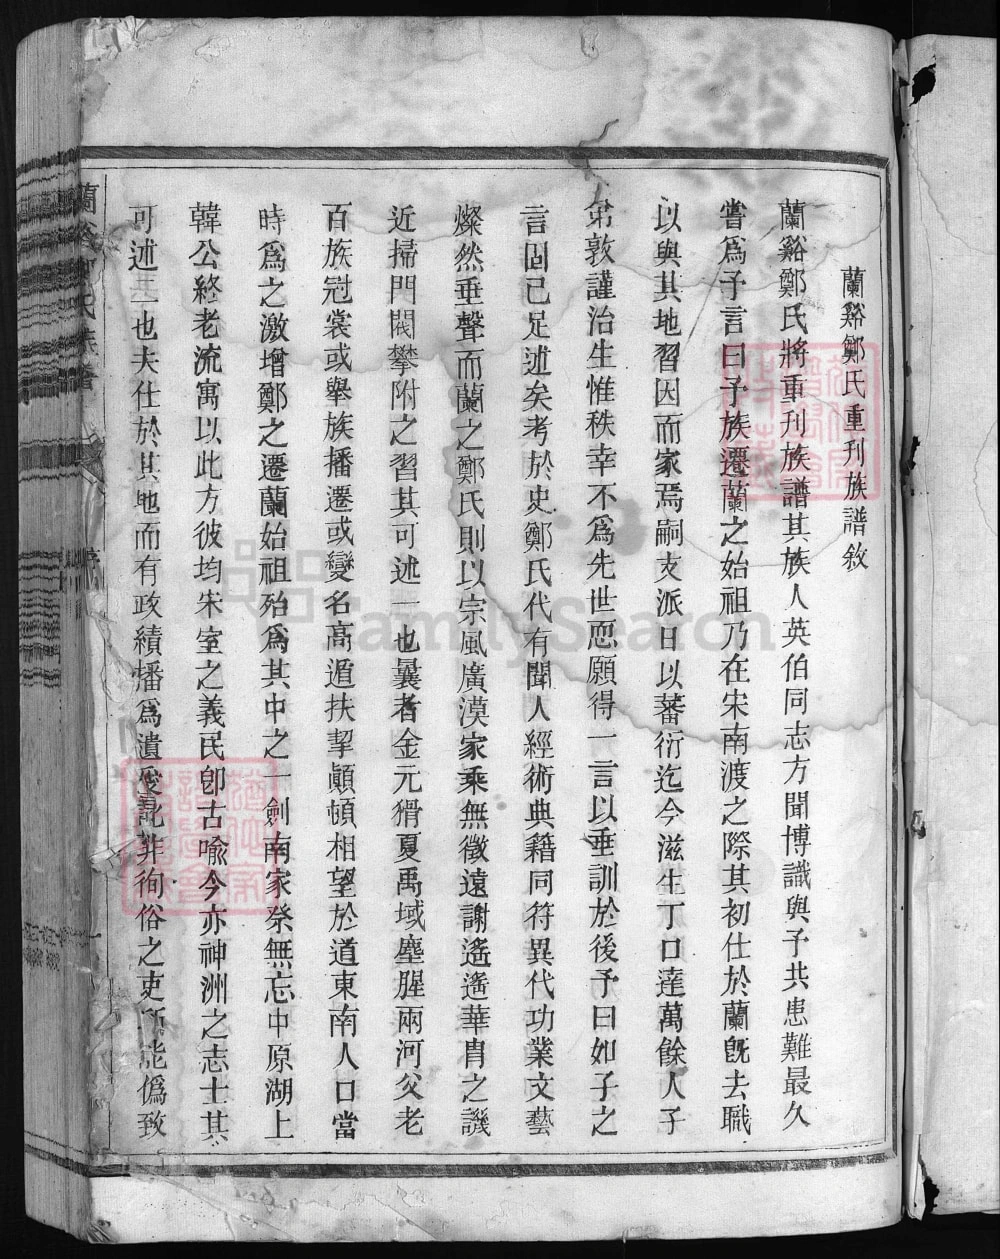 蘭谿鄭氏重刊族譜敘
蘭谿鄭氏將重刊族譜其族人英伯同志方聞博識與予共患難最久
嘗爲予言曰予族遷蘭之始祖乃在宋南渡之際其初仕於蘭旣去職
以與其地習因而家焉嗣支派日以蕃衍迄今滋生丁口達萬餘人子
弟敦謹治生惟秩幸不爲先世恧願得一言以垂訓於後予曰如子之
言固已足述矣考於史鄭氏代有聞人經術典籍同符異代功業文藝
燦然垂聲而蘭之鄭氏則以宗風廣漠家乘無徵遠謝遙遙華胄之譏
近掃門閥攀附之習其可述一也曩者金元猾夏禹域塵腥兩河父老
百族冠裳或舉族播遷或變名高遁扶挈顚頓相望於道東南人口當
時爲之激增鄭之遷蘭始祖殆爲其中之一劍南家祭無忘中原湖上
韓公終老流寓以此方彼均宋室之義民卽古喩今亦神洲之志士其
可述二也夫仕於其地而有政績播爲遺愛訛非徇俗之吏所能僞致
蘭谿鄭氏族譜
序
一
FamilySearch